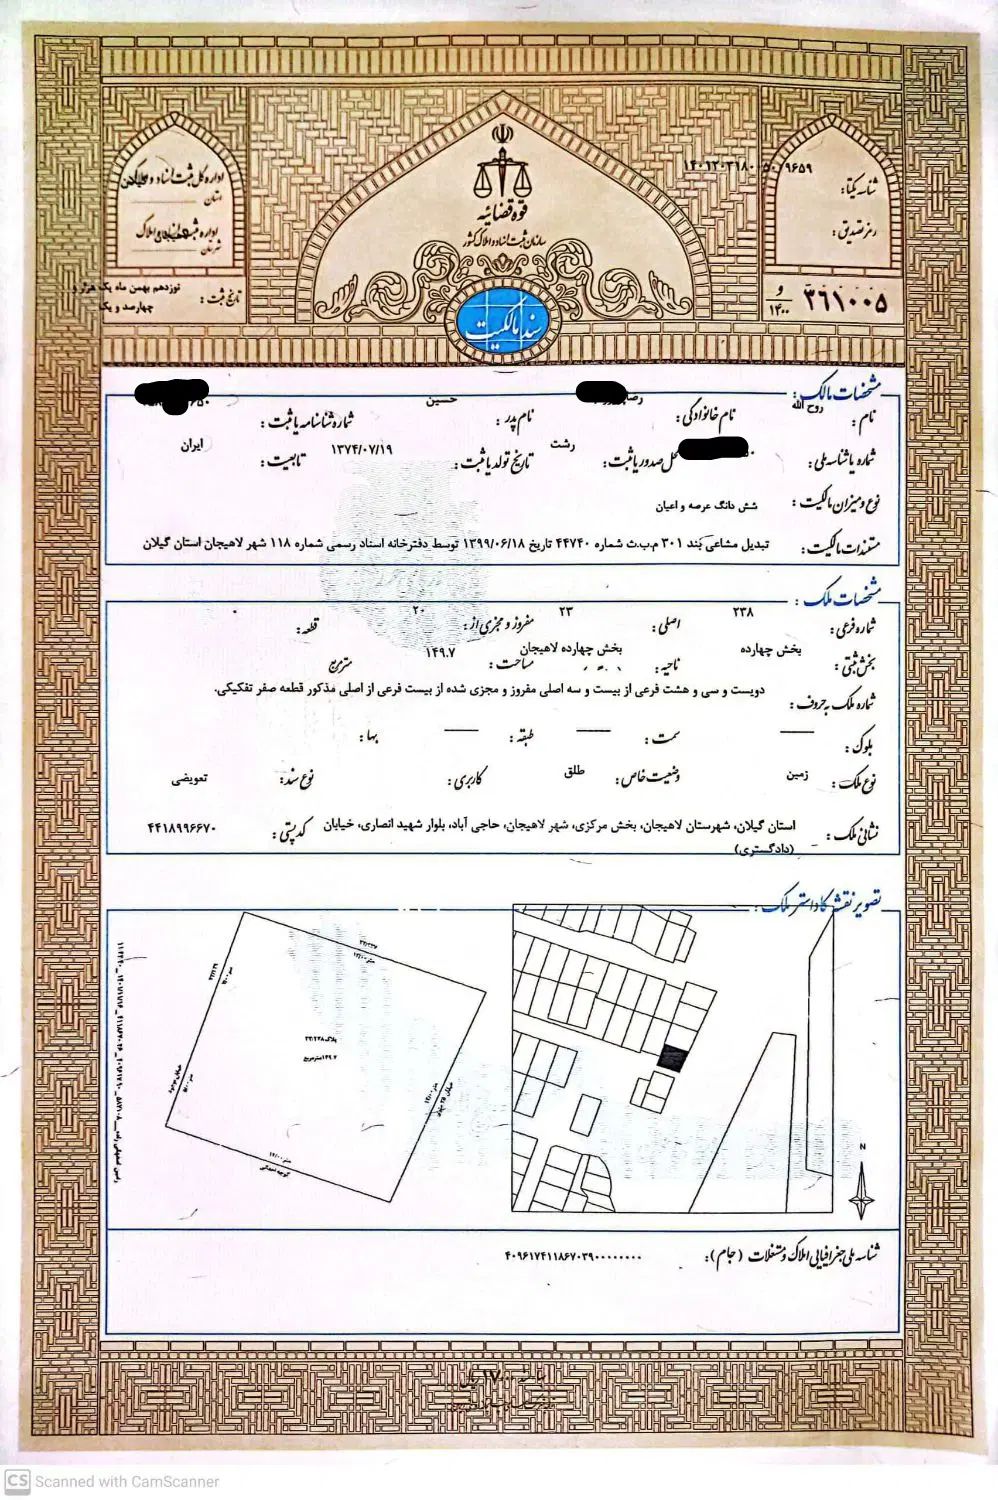 قوه قضائیه
سازمان ثبت اسناد و املاک کشور
سند مالکیت
شناسه یکتا:
رمز تصدیق:
۳۶۱۰۰۵ و ۱۴۰۰
اداره کل ثبت اسناد و املاک
استان
شهرستان
تاریخ ثبت: نوزدهم بهمن ماه یک هزار و چهارصد و یک
مشخصات مالک:
نام: روح الله نام خانوادگی: نام پدر: حسین شماره شناسنامه یا ثبت:
شماره یا شناسه ملی: محل صدور یا ثبت: رشت تاریخ تولد یا ثبت: ۱۳۷۴/۰۷/۱۹ تابعیت: ایران
نوع و میزان مالکیت: شش دانگ عرصه و اعیان
مستندات مالکیت: تبدیل مشاعی بند ۳۰۱ م.ب.ث شماره ۴۴۷۴۰ تاریخ ۱۳۹۹/۰۶/۱۸ توسط دفترخانه اسناد رسمی شماره ۱۱۸ شهر لاهیجان استان گیلان
مشخصات ملک:
شماره فرعی: ۲۳۸ اصلی: ۲۳ مفروز و مجزی از: ۲۰ قطعه: ۰
بخش ثبتی: بخش چهارده ناحیه: بخش چهارده لاهیجان مساحت: ۱۴۹.۷ مترمربع
شماره ملک به حروف: دویست و سی و هشت فرعی از بیست و سه اصلی مفروز و مجزی شده از بیست فرعی از اصلی مذکور قطعه صفر تفکیکی.
بلوک: سمت: طبقه: بها:
نوع ملک: زمین وضعیت خاص: طلق کاربری: نوع سند: تعویضی
نشانی ملک: استان گیلان، شهرستان لاهیجان، بخش مرکزی، شهر لاهیجان، حاجی آباد، بلوار شهید انصاری، خیابان کد پستی: ۴۴۱۸۹۹۶۶۷۰
(دادگستری)
تصویر نقشه کاداستر ملک:
پلاک ۲۳/۲۳۸
۱۴۹.۷ مترمربع
N
شناسه ملی جغرافیایی املاک و مستغلات (جام): ۴۰۹۶۱۷۴۱۱۸۶۷۰۳۹۰۰۰۰۰۰۰۰
CS Scanned with CamScanner